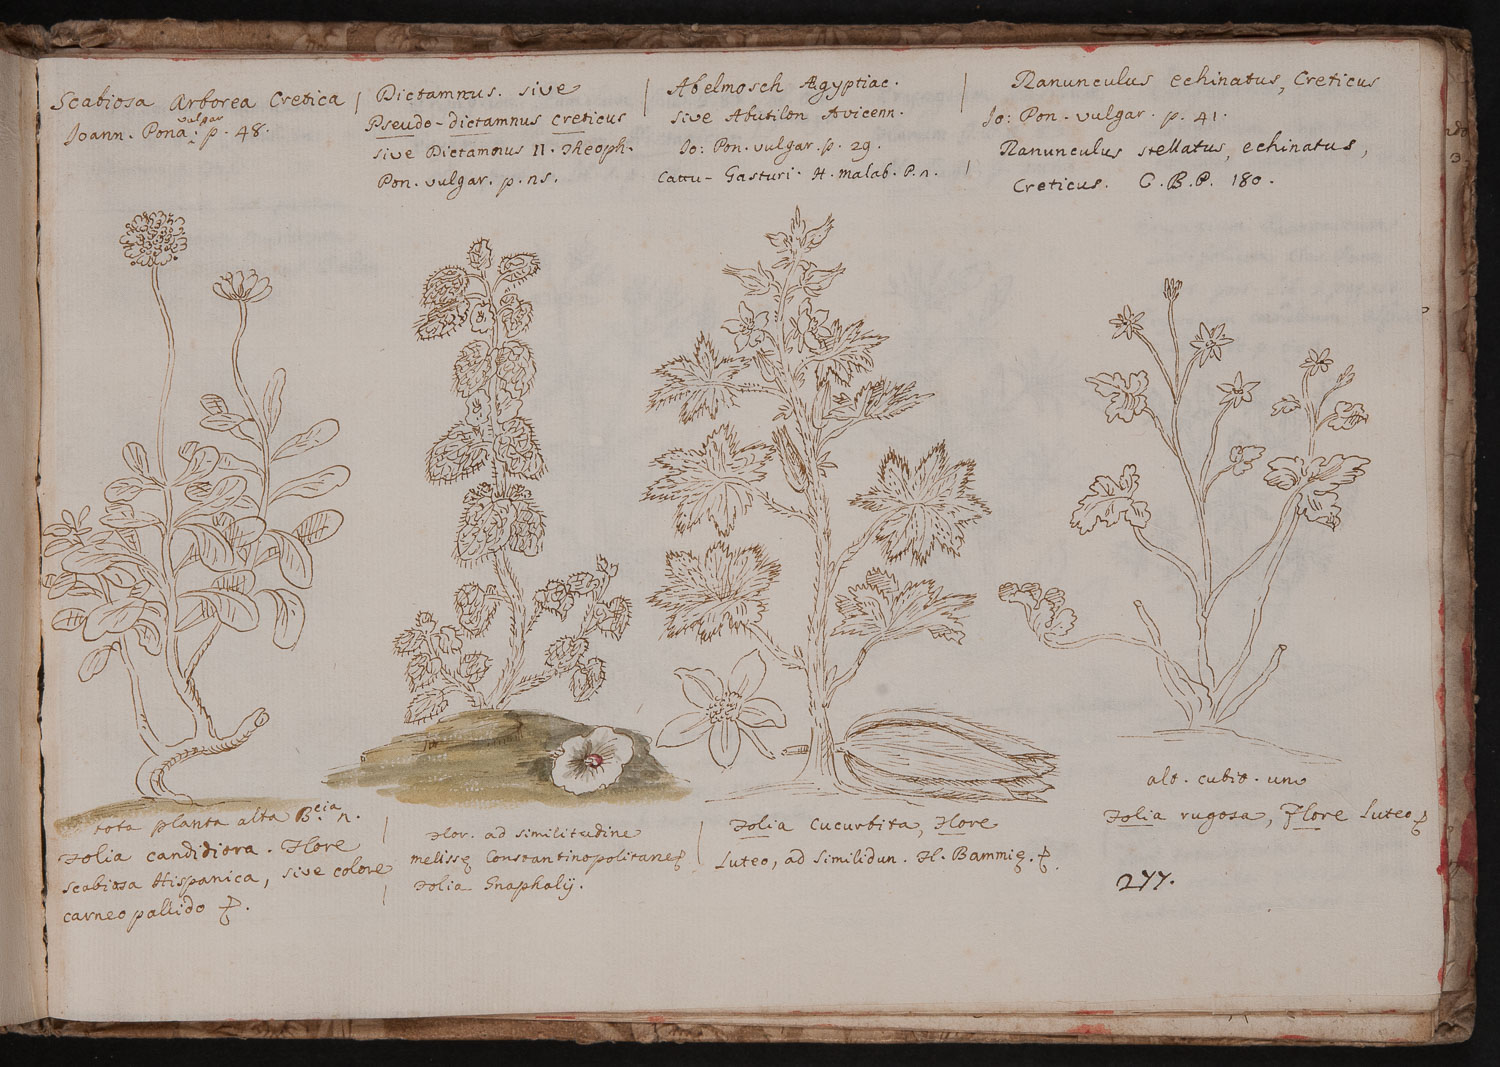 Scabiosa Arborea Cretica
Joann. Pona vulgar p. 48.
Dictamnus. sive
Pseudo-dictamnus creticus
sive Dictamnus II. Theoph.
Pon. vulgar. p. ns.
Abelmosch Ægyptiac.
sive Abutilon Avicenn.
Jo: Pon. vulgar. p. 29.
Cattu-Gasturi. H. malab. P. n.
Ranunculus echinatus, Creticus
Jo: Pon. vulgar. p. 41.
Ranunculus stellatus, echinatus,
Creticus. C. B. P. 180.
tota planta alta n.
Folia candidiora. Flore
Scabiosa Hispanica, sive colore
carneo pallido
Flor. ad similitudine
melissę Constantinopolitanę
Folia Gnaphalij.
Folia Cucurbita, Flore
Luteo, ad Similidun. Fl. Bammię.
alt. cubit. uno
Folia rugosa, Flore Luteo
277.